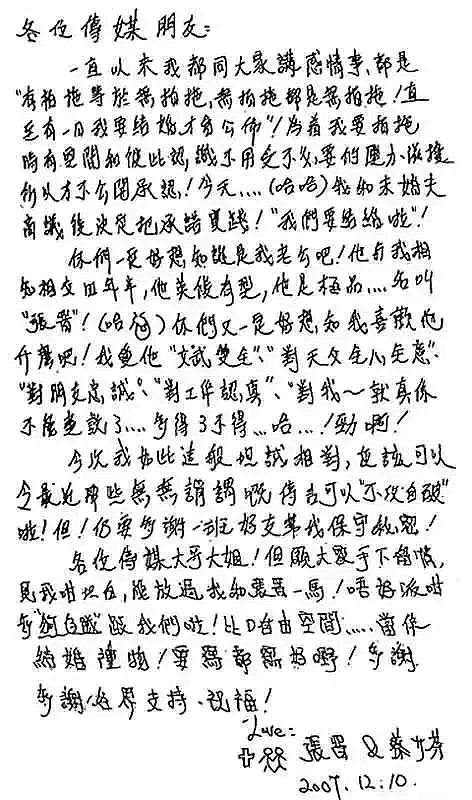 各位傳媒朋友:
一直以來我都同大家講感情事,都是
"有拍拖等於無拍拖,無拍拖都是無拍拖!直
至有一日我要結婚,才會公佈"!為着我要拍拖
時有空間和彼此認識不用受不必要的壓力
所以才不公開承認!今天....(哈哈)我和未婚夫
商議後決定把承諾實踐!"我們要結婚啦"!
你們一定好想知誰是我老公吧!他与我相
知相交四年半,他英俊有型,他是極品....名叫
"張晋"!(哈哈)你們又一定好想知我喜歡他
什麼吧!我愛他"文武雙全"、"對天父全心全意"、
"對朋友忠誠"、"對工作認真"、"對我~就真係
不能盡說了....多得3不得...哈...!勁啊!
今次我如此這般坦誠相對,應該可以
令最近那些無無謂謂嘅傳言可以"不攻自破"
啦!但!仍要多謝一班好友幫我保守秘密!
各位傳媒大哥大姐!但願大家手下留情,
見我咁坦白,能放過我和張晋一馬!唔好派咁
多"狗仔隊"跟我們啦!比D自由空間.....當作
結婚禮物!要寫都寫好嘢!多謝
多謝各界支持、祝福!
Love:
張晋 & 蔡少芬
2007.12.10.